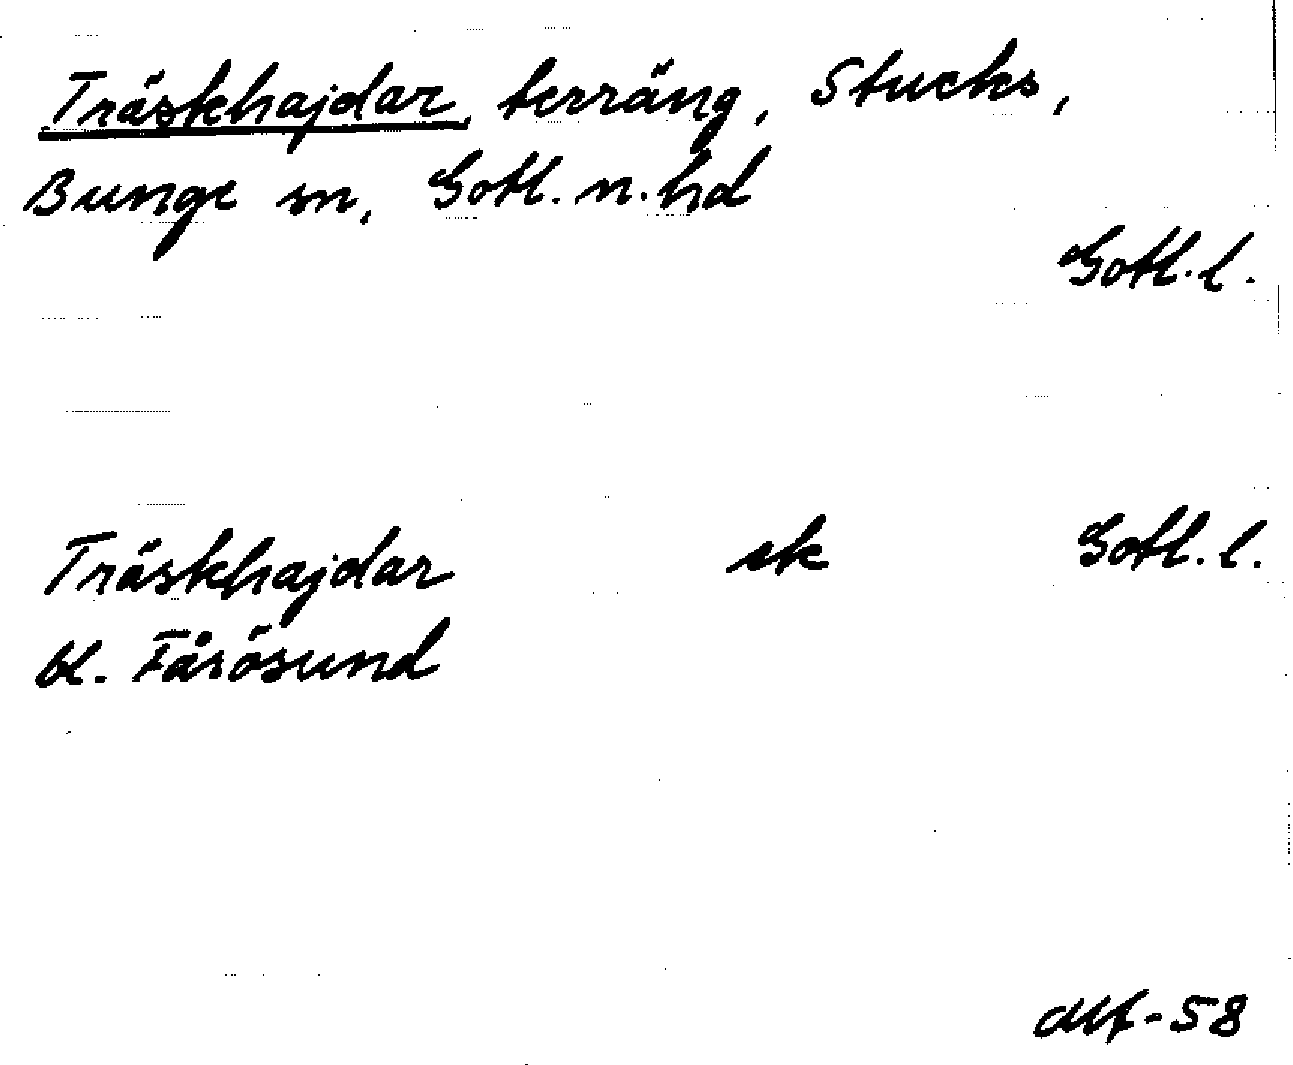 Träskhajdar, terräng, Stucks,
Bunge sn, Gotl. n. hd
Gotl. l.
Träskhajdar ek Gotl. l.
bl. Fårösund
-58